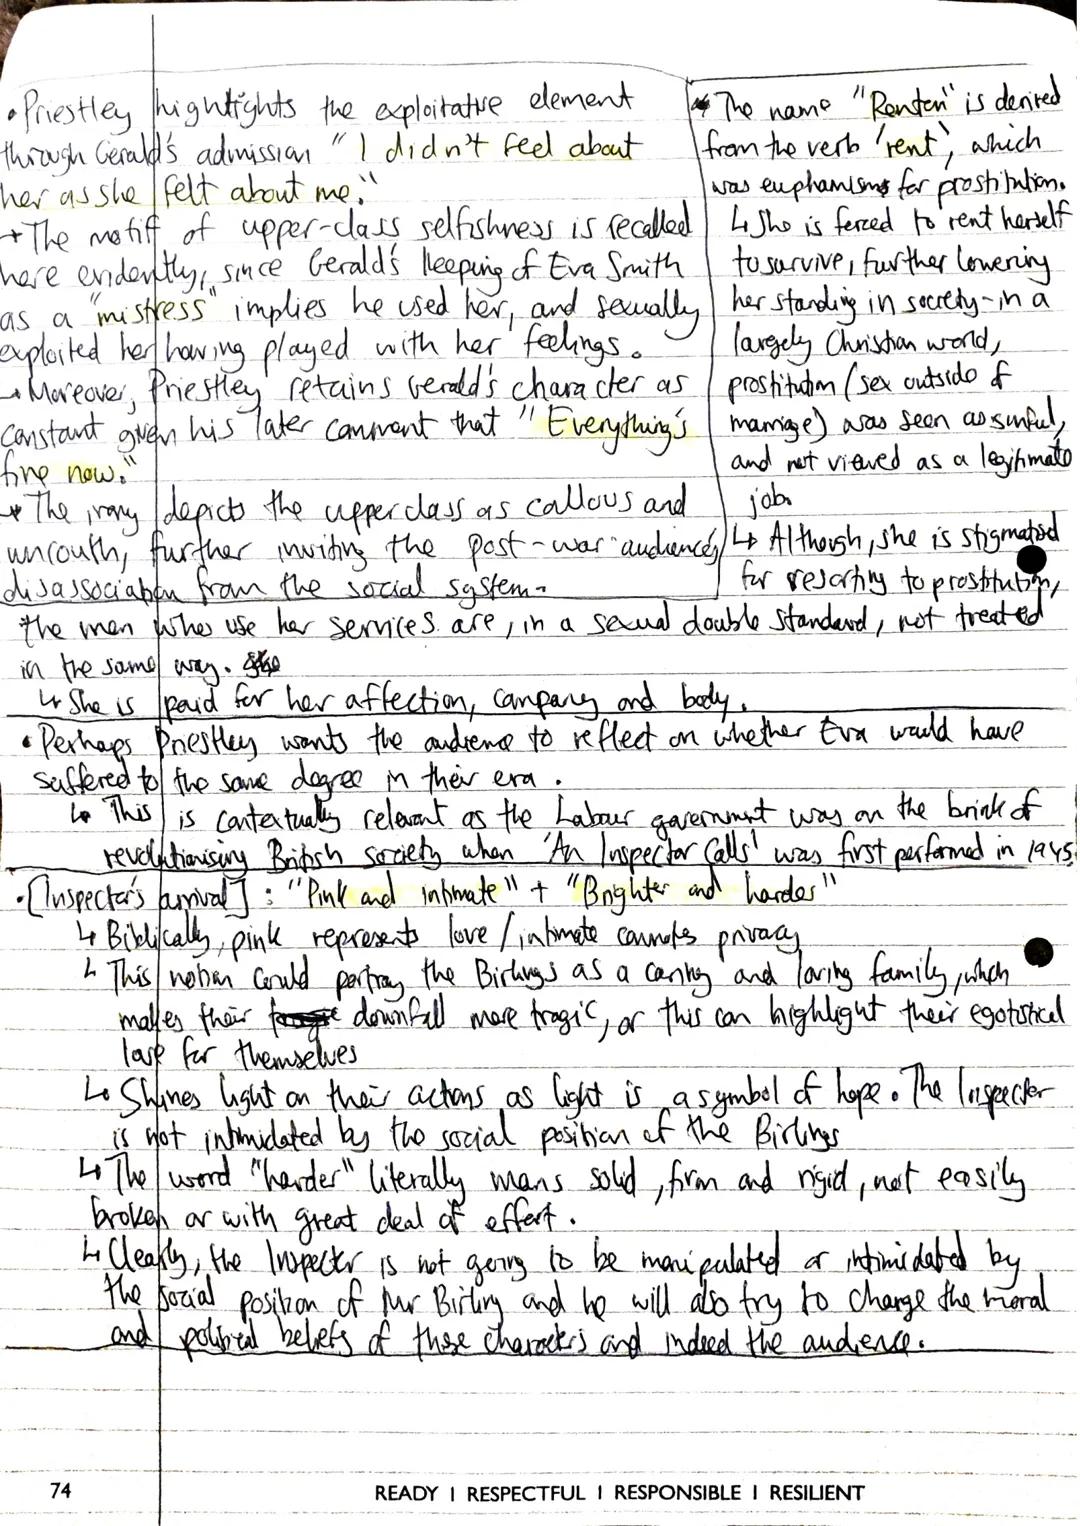 • Priestley highlights the exploitative element
through Gerald's admission " I didn't feel about
her as she felt about me."
→ The motif of upper-class selfishness is recalled
here evidently, since Gerald's keeping of Eva Smith
as a "mistress" implies he used her, and sexually
exploited her having played with her feelings.
→ Moreover, Priestley retains Gerald's character as
constant given his later comment that "Everything's
fine now."
→ The irony depicts the upperclass as callous and
uncouth, further inviting the post-war audience's
disassociation from the social system.
→ The name "Renten" is derived
from the verb 'rent', which
was euphamisms for prostitution.
↳ She is forced to rent herself
to survive, further lowering
her standing in society - in a
largely Christian world,
prostitution (sex outside of
marriage) was seen as sinful,
and not viewed as a legitimate
job.
↳ Although, she is stigmatised
for resorting to prostitution,
the men who use her services are, in a sexual double standard, not treated
in the same way.
↳ She is paid for her affection, company and body.
• Perhaps Priestley wants the audience to reflect on whether Eva would have
suffered to the same degree in their era.
↳ This is contextually relevant as the Labour government was on the brink of
revolutionising British society when 'An Inspector Calls' was first performed in 1945
• [Inspector's arrival] : "Pink and intimate" + "Brighter and harder"
↳ Biblically, pink represents love / intimate connotes privacy
↳ This notion could portray the Birlings as a caring and loving family, which
makes their downfall more tragic, or this can highlight their egotistical
love for themselves
↳ Shines light on their actions as light is a symbol of hope. The Inspector
is not intimidated by the social position of the Birlings
↳ The word "harder" literally means solid, firm and rigid, not easily
broken or with great deal of effort.
↳ Clearly, the Inspector is not going to be manipulated or intimidated by
the social position of Mr Birling and he will also try to change the moral
and political beliefs of these characters and indeed the audience.
74
READY I RESPECTFUL I RESPONSIBLE I RESILIENT